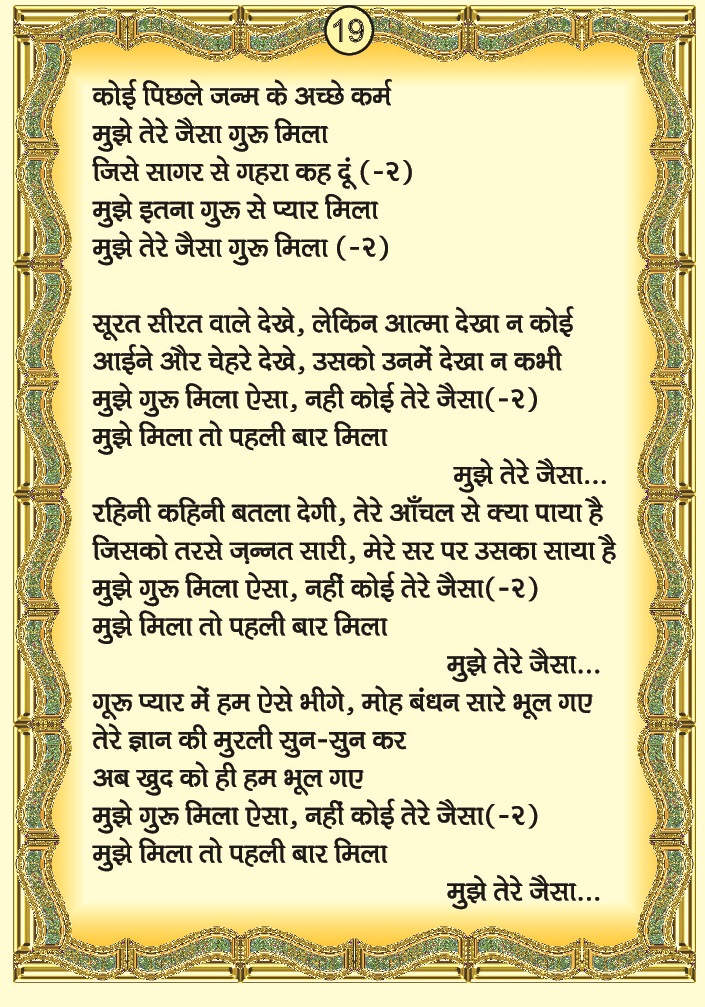 19
कोई पिछले जन्म के अच्छे कर्म
मुझे तेरे जैसा गुरू मिला
जिसे सागर से गहरा कह दूं (-२)
मुझे इतना गुरू से प्यार मिला
मुझे तेरे जैसा गुरू मिला (-२)
सूरत सीरत वाले देखे, लेकिन आत्मा देखा न कोई
आईने और चेहरे देखे, उसको उनमें देखा न कभी
मुझे गुरू मिला ऐसा, नही कोई तेरे जैसा(-२)
मुझे मिला तो पहली बार मिला
मुझे तेरे जैसा...
रहिनी कहिनी बतला देगी, तेरे आँचल से क्या पाया है
जिसको तरसे ज़न्नत सारी, मेरे सर पर उसका साया है
मुझे गुरू मिला ऐसा, नहीं कोई तेरे जैसा(-२)
मुझे मिला तो पहली बार मिला
मुझे तेरे जैसा...
गूरू प्यार में हम ऐसे भीगे, मोह बंधन सारे भूल गए
तेरे ज्ञान की मुरली सुन-सुन कर
अब खुद को ही हम भूल गए
मुझे गुरू मिला ऐसा, नहीं कोई तेरे जैसा(-२)
मुझे मिला तो पहली बार मिला
मुझे तेरे जैसा...